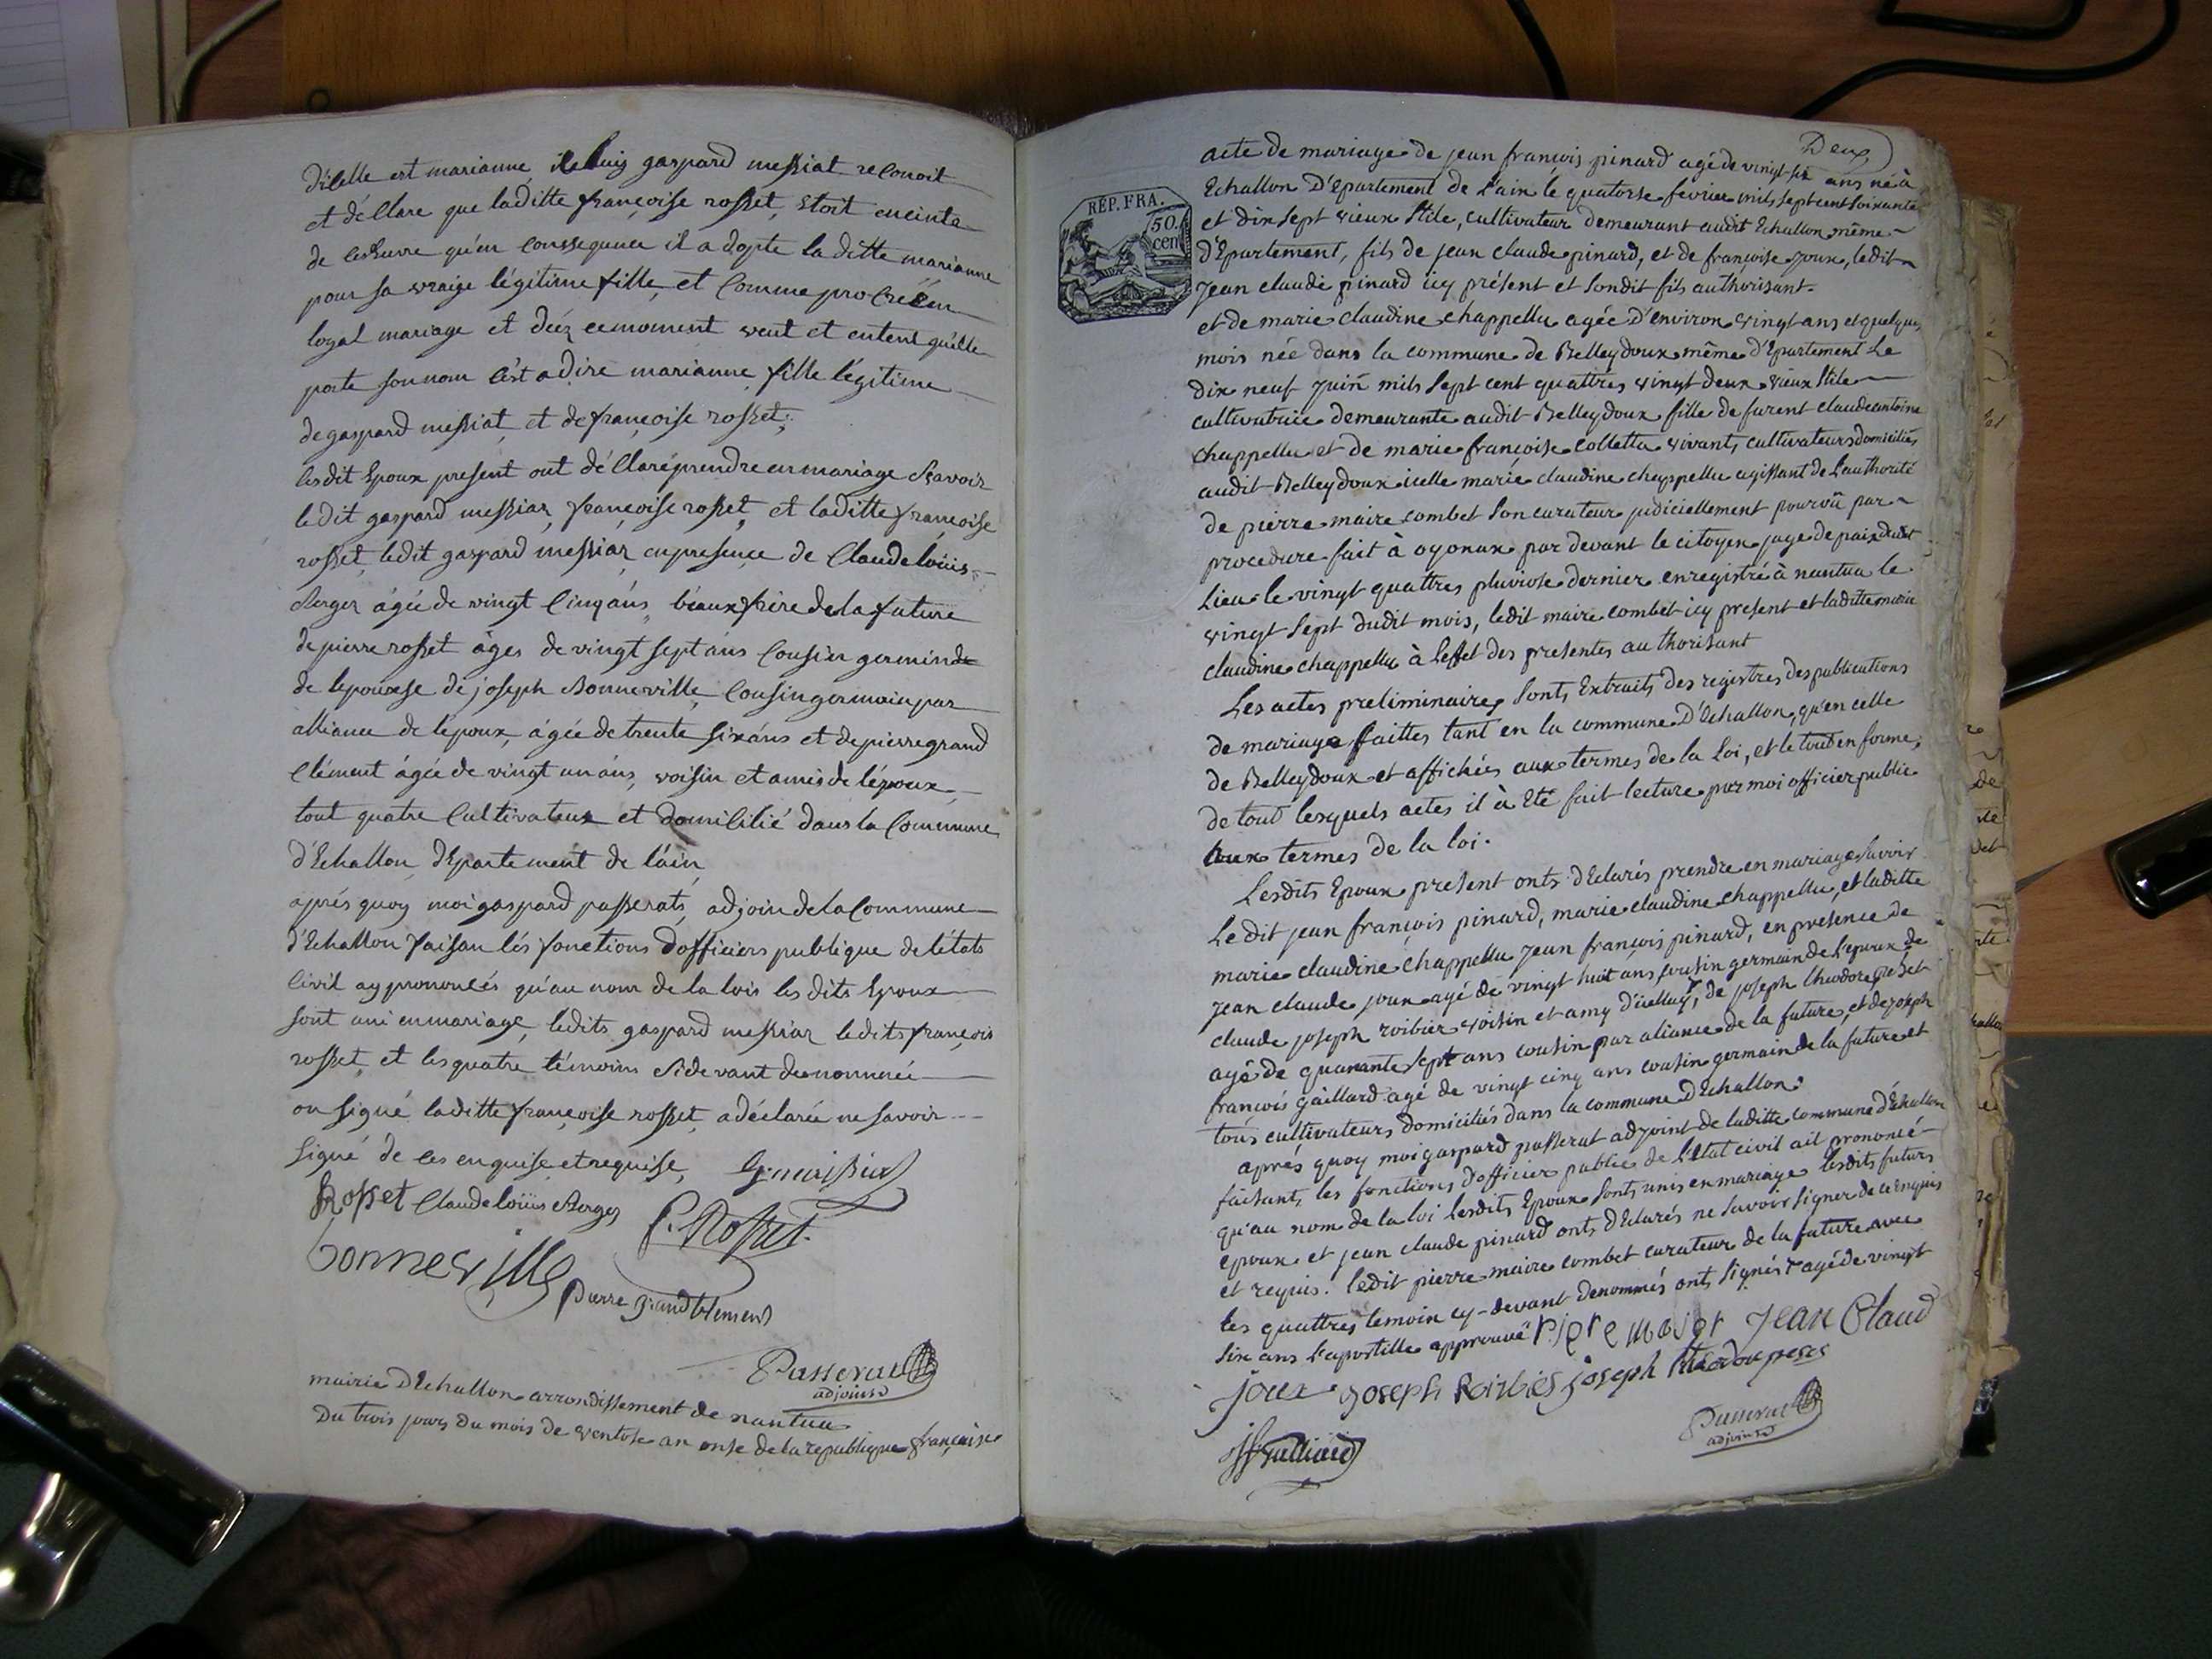 d'icelle est marianne, iceluis gaspard messiat reconoit
et déClare que laditte françoise rosset, etoit enceinte
de ces œuvre qu'en conssequence il adopte la ditte marianne
pour sa vraige légitime fille, et Comme procréé en
loyal mariage et déz ce moment veut et entent qu'elle
porte son nom c'est a dire marianne fille légitime
de gaspard messiat, et de françoise rosset;
lesdit Epoux present ont déClaré prendre en mariage Sçavoir
ledit gaspard messiar, françoise rosset, et laditte françoise
rosset, ledit gaspard messiar, en presence de Claude loüis
Berger âgée de vingt Cinq áns, béaux frére de la future
de pierre rosset âges de vingt sept áns Cousien germinde
de lepouxse de joseph Bonneville, Cousin germain par
alliance de lépoux, ágée de trente six áns et de pierre grand
Clément ágée de vingt un áns, voisin et amis de l'époux,
tout quatre Cultivateux et domicilié dans la Commune
d'Echallon dEpartement de l'áin
aprés quoy moi gaspard passerats, adjoin de la Commune
d'Echallon faisan lés fonctions dofficiers publique de l'états
Civil ay prononcés qu'au nom de la lois les dits Epoux
sont uni en mariage, ledits gaspard messiar ledits françois
rosset, et les quatre témoins Sidevant denommée
on signé laditte françoise rosset, a déclarée ne savoir
signé de ces enquise et requise,
Rosset Claude loüis Berger P. Rosset
bonneville pierre grandclement
Passerat
adjoint
mairie d'Echallon arrondissement de nantua
Du trois jours du mois de ventose an onse de la republique françaisse
Deux
REP. FRA.
50.
cent
acte de mariage de jean françois pinard agé de vingt-six ans né à
Echallon D'Epartement de L'ain le quatorse fevrier mils sept cent soixante
et dix sept vieux Stile, cultivateur demeurant audit Echallon même
d'Epartement, fils de jean claude pinard, et de françoise joux, ledit
jean claude pinard icy présent et sondit fils authorisant.
et de marie claudine chappellu agée d'environ vingt ans et quelques
mois née dans la commune de Belleydoux même d'Epartement Le
dix neuf juin mils sept cent quattres vingt deux vieux Stile
cultivatrice demeurante audit Belleydoux fille de furent claude antoine
chappellu et de marie françoise colletta vivants cultivateurs domiciliés
audit Belleydoux icelle marie claudine chappellu agissant de L'authorité
de pierre maire combet son curateur judiciellement pourvû par
procedure fait à oyonax par devant le citoyen juge de paix dudit
Lieu le vingt quattres pluviose dernier enregistré à nantua le
vingt sept dudit mois, ledit maire combet icy present et laditte marie
claudine chappellu à L'effet des presentes authorisant
Les actes preliminaires sonts Extraits des registres des publications
de mariage faittes tant en la commune d'Echallon, qu'en celle
de Belleydoux et affichées aux termes de la Loi, et le tout en forme,
de tout lesquels actes il à Eté fait lecture par moi officier public
aux termes de la loi.
Lesdits Epoux present onts déclarés prendre en mariage savoir
Le dit jean françois pinard, marie claudine chappellu, et laditte
marie claudine chappellu jean françois pinard, en presence de
jean claude joux agé de vingt huit ans cousin germain de l'epoux de
claude joseph roibier voisin et amy d'icelluy, de joseph theodore
agé de quarante sept ans cousin par aliance de la future, et de joseph
françois gaillard agé de vingt cinq ans cousin germain de la future et
tous cultivateurs domiciliés dans la commune d'Echallon.
aprés quoy moi gaspard passerat adjoint de laditte commune d'Echallon
faisants les fonctions d'officier public de L'Etat civil ait prononcé
qu'au nom de la loi lesdits Epoux sonts unis en mariage lesdits futurs
epoux et jean claude pinard onts déclarés ne savoir signer de ce enquis
et requis. ledit pierre maire combet curateur de la future avec
les quattres temoin cy-devant denommés onts signés + agé de vingt
six ans L'apostille approuvé Piere majer Jean Claud
joux joseph Roirbies joseph
Passerat
adjoint